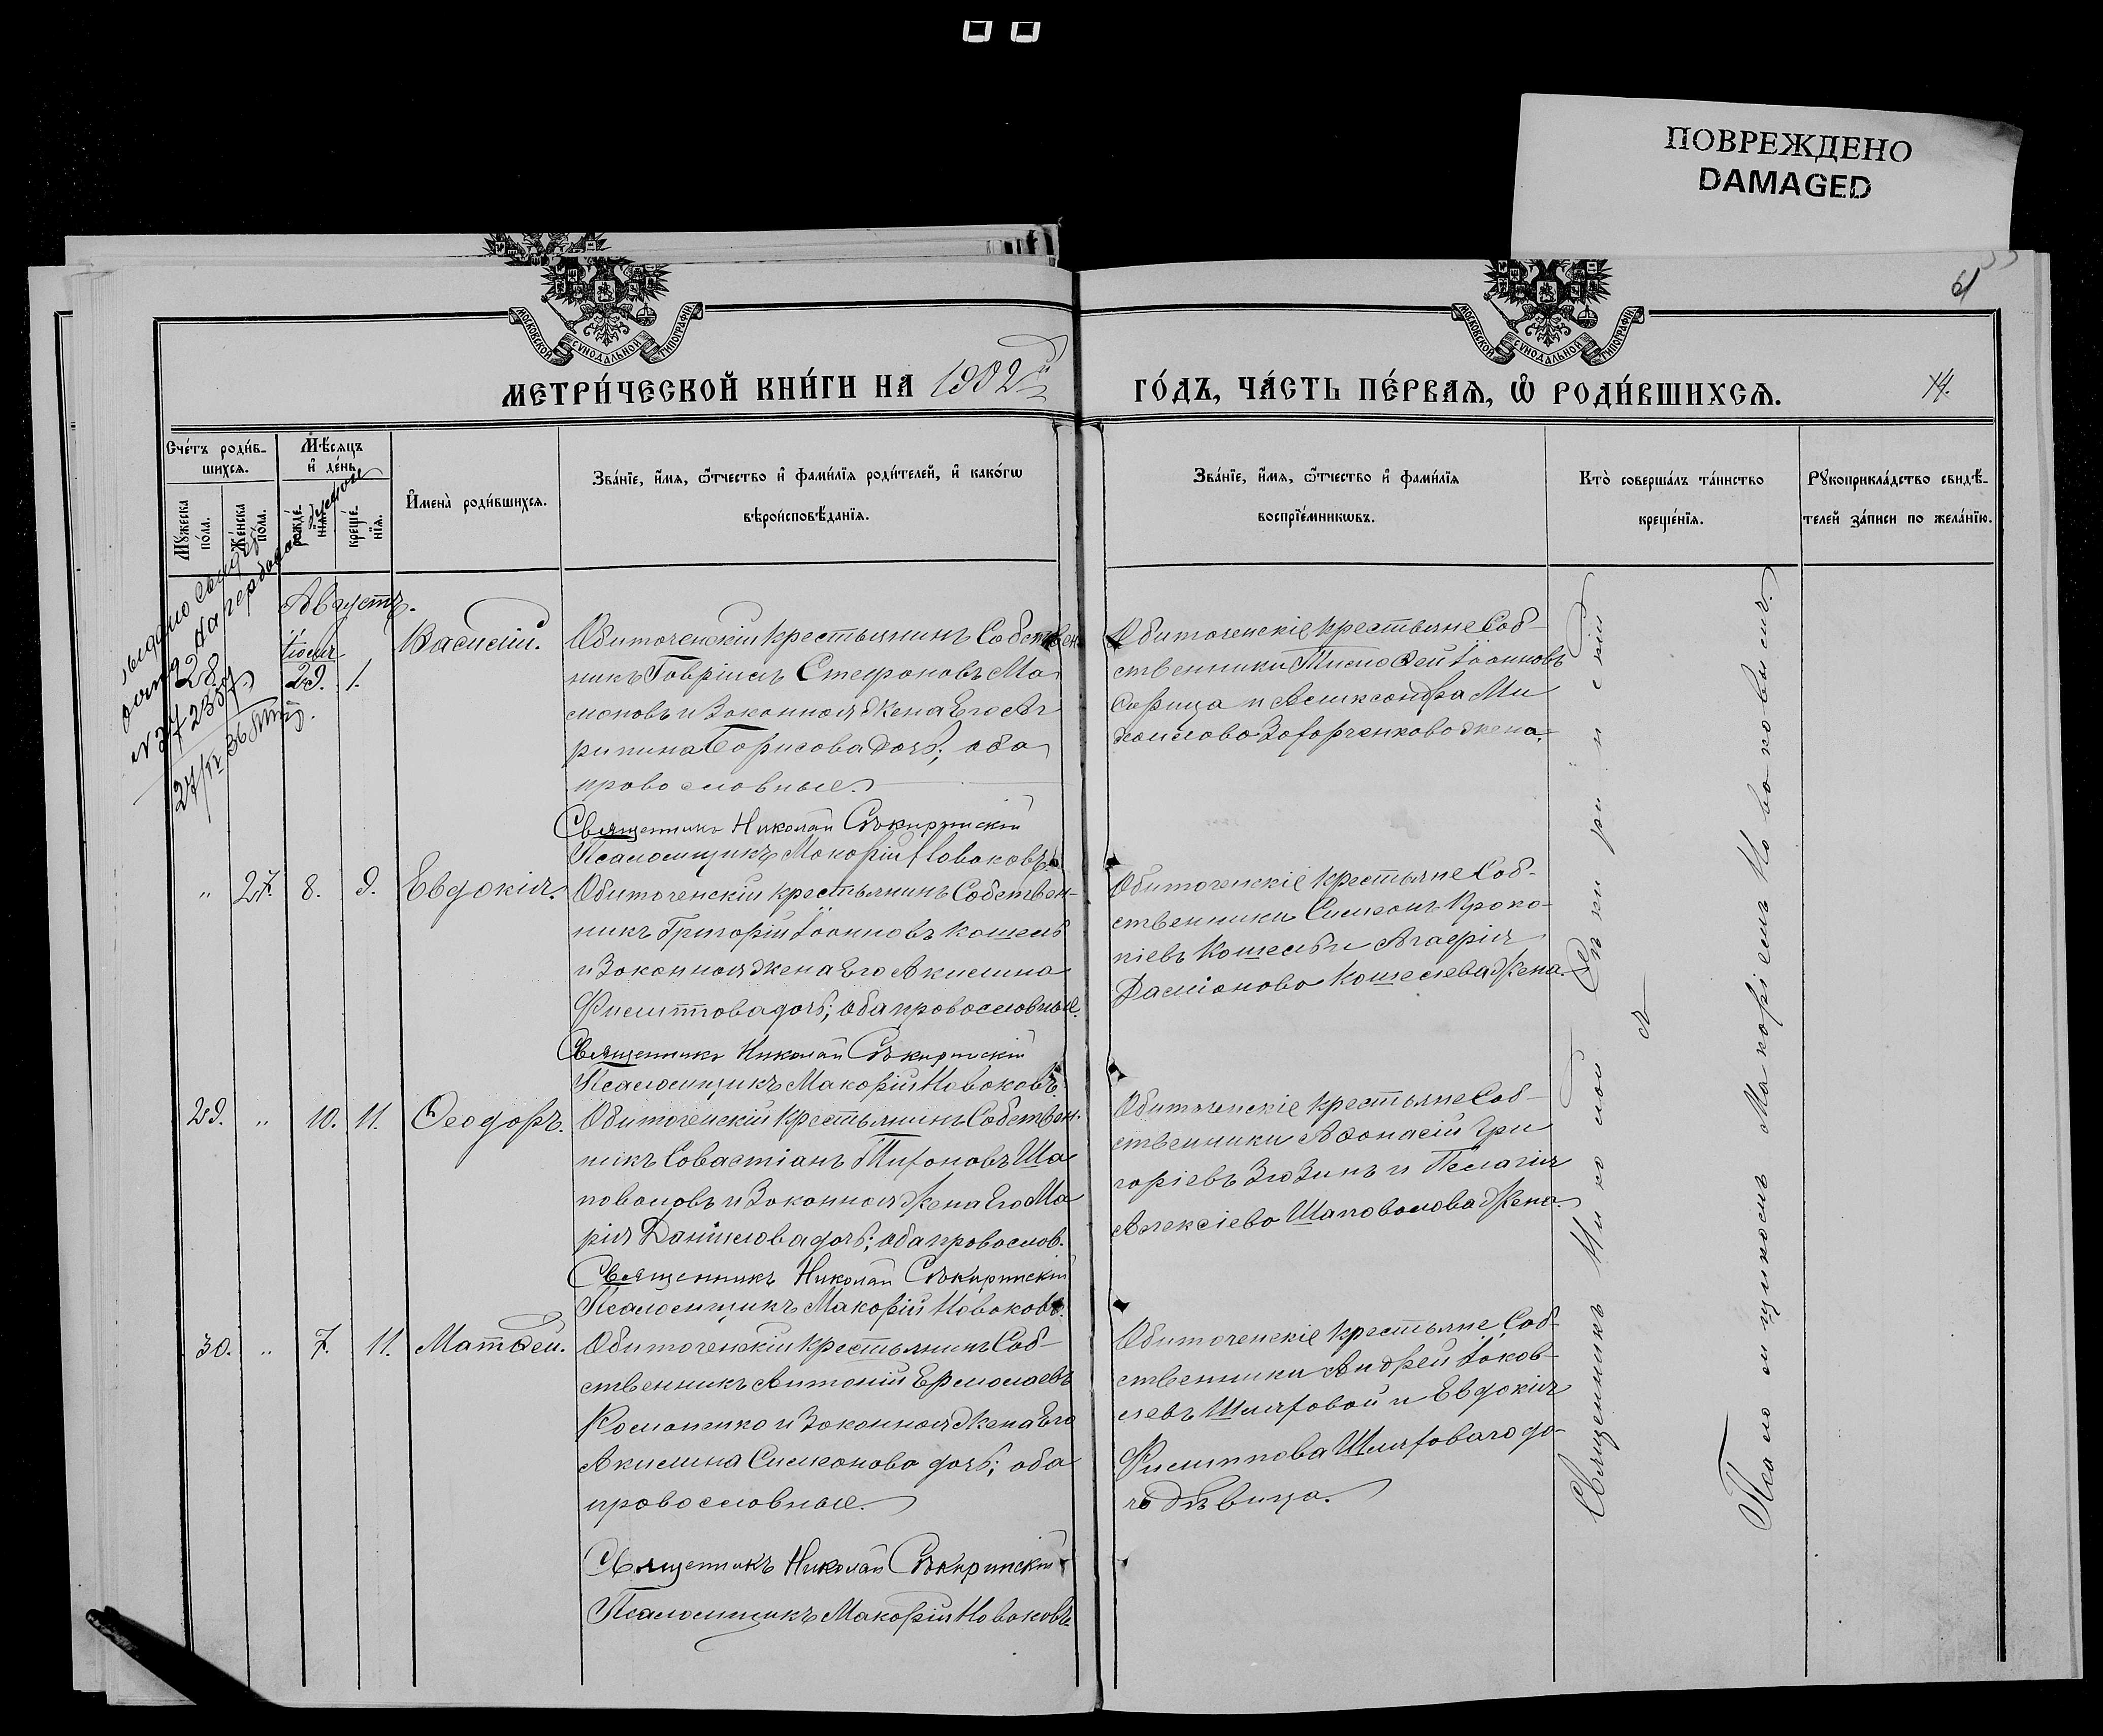 ПОВРЕЖДЕНО
DAMAGED
61
МОСКОВСКОЙ СѴНОДАЛЬНОЙ ТИПОГРАФІИ
МОСКОВСКОЙ СѴНОДАЛЬНОЙ ТИПОГРАФІИ
МЕТРИ́ЧЕСКОЙ КНИ́ГИ НА 1902й
ГО́ДЪ, ЧА́СТЬ ПЕ́РВАѦ, Ѡ҆ РОДИ́ВШИХСѦ.
14.
Сче́тъ роди́в-
шихсѧ.
Мѣ́сѧцъ
и҆ де́нь
Мꙋ́жеска
по́ла.
Же́нска
по́ла.
рожде́-
нїѧ.
креще́-
нїѧ.
И҆мена̀ роди́вшихсѧ.
Зва́нїе, и҆́мѧ, ѻ҆́тчество и҆ фами́лїѧ роди́телей, и҆ како́гѡ
вѣроисповѣ́данїѧ.
Зва́нїе, и҆́мѧ, ѻ҆́тчество и҆ фами́лїѧ
воспрїе́мникѡвъ.
Кто̀ соверша́лъ та́инство
креще́нїѧ.
Рꙋкоприкла́дство свидѣ́-
телей за́писи по жела́нїю.
Августъ.
28.
Іюля
29. 1.
Василій.
Обиточенскій крестьянинъ Собствен
никъ Гавріилъ Стефановъ Ма
моновъ и Законная Жена Его Аг
рипина Борисова дочь; оба
православные.
Священникъ Николай Сѣкиринскій
Псаломщикъ Макарій Новаковъ.
Обиточенскіе крестьяне Соб-
ственники Тимофей Іоанновъ
и Александра Ми
хаилова Захарченкова жена.
" 27. 8. 9. Евдокія.
Обиточенскій крестьянинъ Собствен-
никъ Григорій Іоанновъ Кошель
и Законная Жена Его Акилина
Филиппова дочь; оба православные.
Священникъ Николай Сѣкиринскій
Псаломщикъ Макарій Новаковъ.
Обиточенскіе крестьяне Соб-
ственники Симеонъ Проко-
піевъ Кошель и Агафія
Даміанова Кошелева Жена.
29. " 10. 11. Ѳеодоръ.
Обиточенскій крестьянинъ Собствен.
никъ Савастіанъ Тихоновъ Ша
поваловъ и Законная Жена Его Ма
рія Даніилова дочь; оба православ.
Священникъ Николай Сѣкиринскій
Псаломщикъ Макарій Новаковъ.
Обиточенскіе крестьяне Соб-
ственники Аѳанасій Гри
горіевъ Зюзинъ и Пелагія
Алексіева Шаповалова Жена.
30. " 7. 11. Матѳей.
Обиточенскій крестьянинъ Соб-
ственникъ Антоній Ермолаевъ
Романенко и Законная Жена Его
Акилина Симеонова дочь; оба
православные.
Священникъ Николай Сѣкиринскій
Псаломщикъ Макарій Новаковъ.
Обиточенскіе крестьяне Соб-
ственники Андрей Іаков-
левъ Шляховой и Евдокія
Филиппова Шляховаго до-
чь дѣвица.
Священникъ Николай Сѣкиринскій
Псаломщикомъ Макаріемъ Новаковымъ.